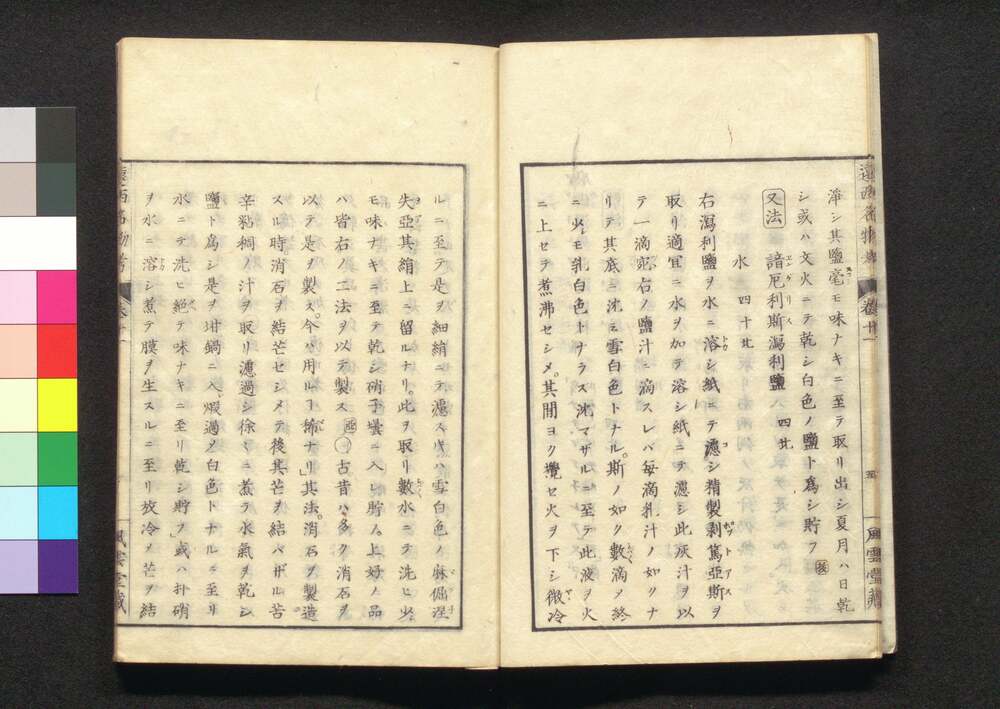 遠西名物考 卷十一
滓シ其鹽毫モ味ナキニ至テ取リ出シ夏月ハ日乾
シ或ハ文火ニテ乾シ白色ノ鹽ト爲シ貯フ
又法 諳厄利斯瀉利鹽 四兆
水 四十兆
右瀉利鹽ヲ水ニ溶シ紙ニテ濾シ精製剥篤亞斯ヲ
取リ適宜ニ水ヲ加テ溶シ紙ニテ濾シ此灰汁ヲ以
テ一滴宛右ノ鹽汁ニ滴スレバ毎滴乳汁ノ如クナ
リテ其底ニ沈ミ雪白色トナル。斯ノ如ク數滴ヲ終
ニ少モ乳白色トナラス沈マザルニ至テ此液ヲ火
ニ上セテ煮沸セシメ。其間ヨク攪セ火ヲ下シ微冷
風雲堂藏
ルニ至テ是ヲ細絹ニテ濾スレハ雪白色ノ麻倔涅
失亞其絹上ニ留ルナリ。此ヲ取リ數水ニテ洗ヒ少
モ味ナキニ至テ乾シ硝子壜ニ入レ貯ム。上好ノ品
ハ皆右ノ二法ヲ以テ製ス 古昔ハ多ク消石ヲ
以テ是ヲ製ス。今ハ用ルヿ稀ナリ」其法。消石ヲ製造
スル時。消石ヲ結芒セシメテ後其芒ヲ結バザル苦
辛粘稠ノ汁ヲ取リ濾過シ徐々ニ煮テ水氣ヲ乾シ
鹽ト爲シ是ヲ坩鍋ニ入、煆過メ白色トナルニ至リ
水ニテ洗ヒ絶テ味ナキニ至リ乾シ貯フ」或ハ朴硝
ヲ水ニ溶シ煮テ膜ヲ生スルニ至リ放冷メ芒ヲ結